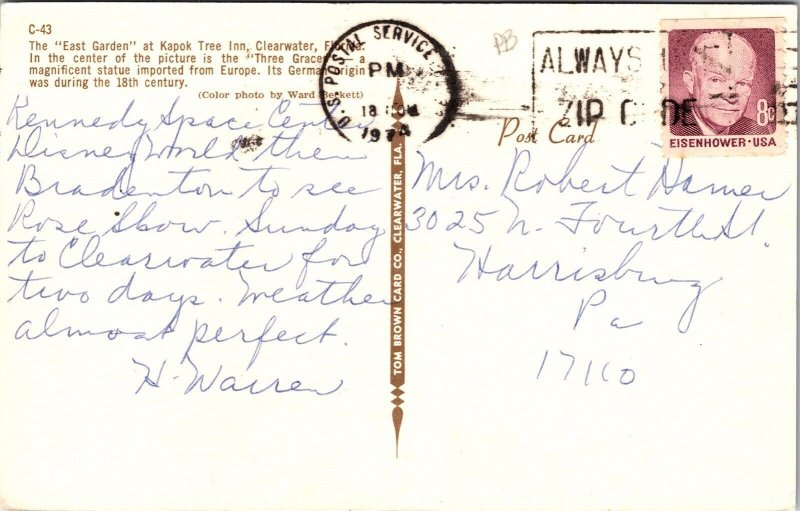 C-43
The "East Garden" at Kapok Tree Inn, Clearwater, Florida.
In the center of the picture is the "Three Graces" — a
magnificent statue imported from Europe. Its German origin
was during the 18th century.
(Color photo by Ward Beckett)
Kennedy Space Center
Disney World then
Bradenton to see
Rose Show. Sunday
to Clearwater for
two days. Weather
almost perfect.
H. Warren
U.S. POSTAL SERVICE
PM
18
1974
TOM BROWN CARD CO., CLEARWATER, FLA.
ALWAYS
ZIP CODE
8c
EISENHOWER·USA
Post Card
Mrs. Robert Hamer
3025 N. Fourth St.
Harrisburg
Pa
17110